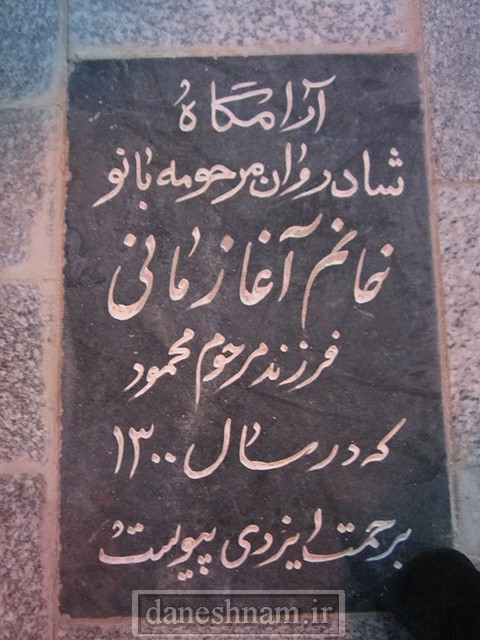 آرامگاه
شادروان مرحومه بانو
خانم آغا زمانی
فرزند مرحوم محمود
که در سال ۱۳۰۰
برحمت ایزدی پیوست
daneshnam.ir